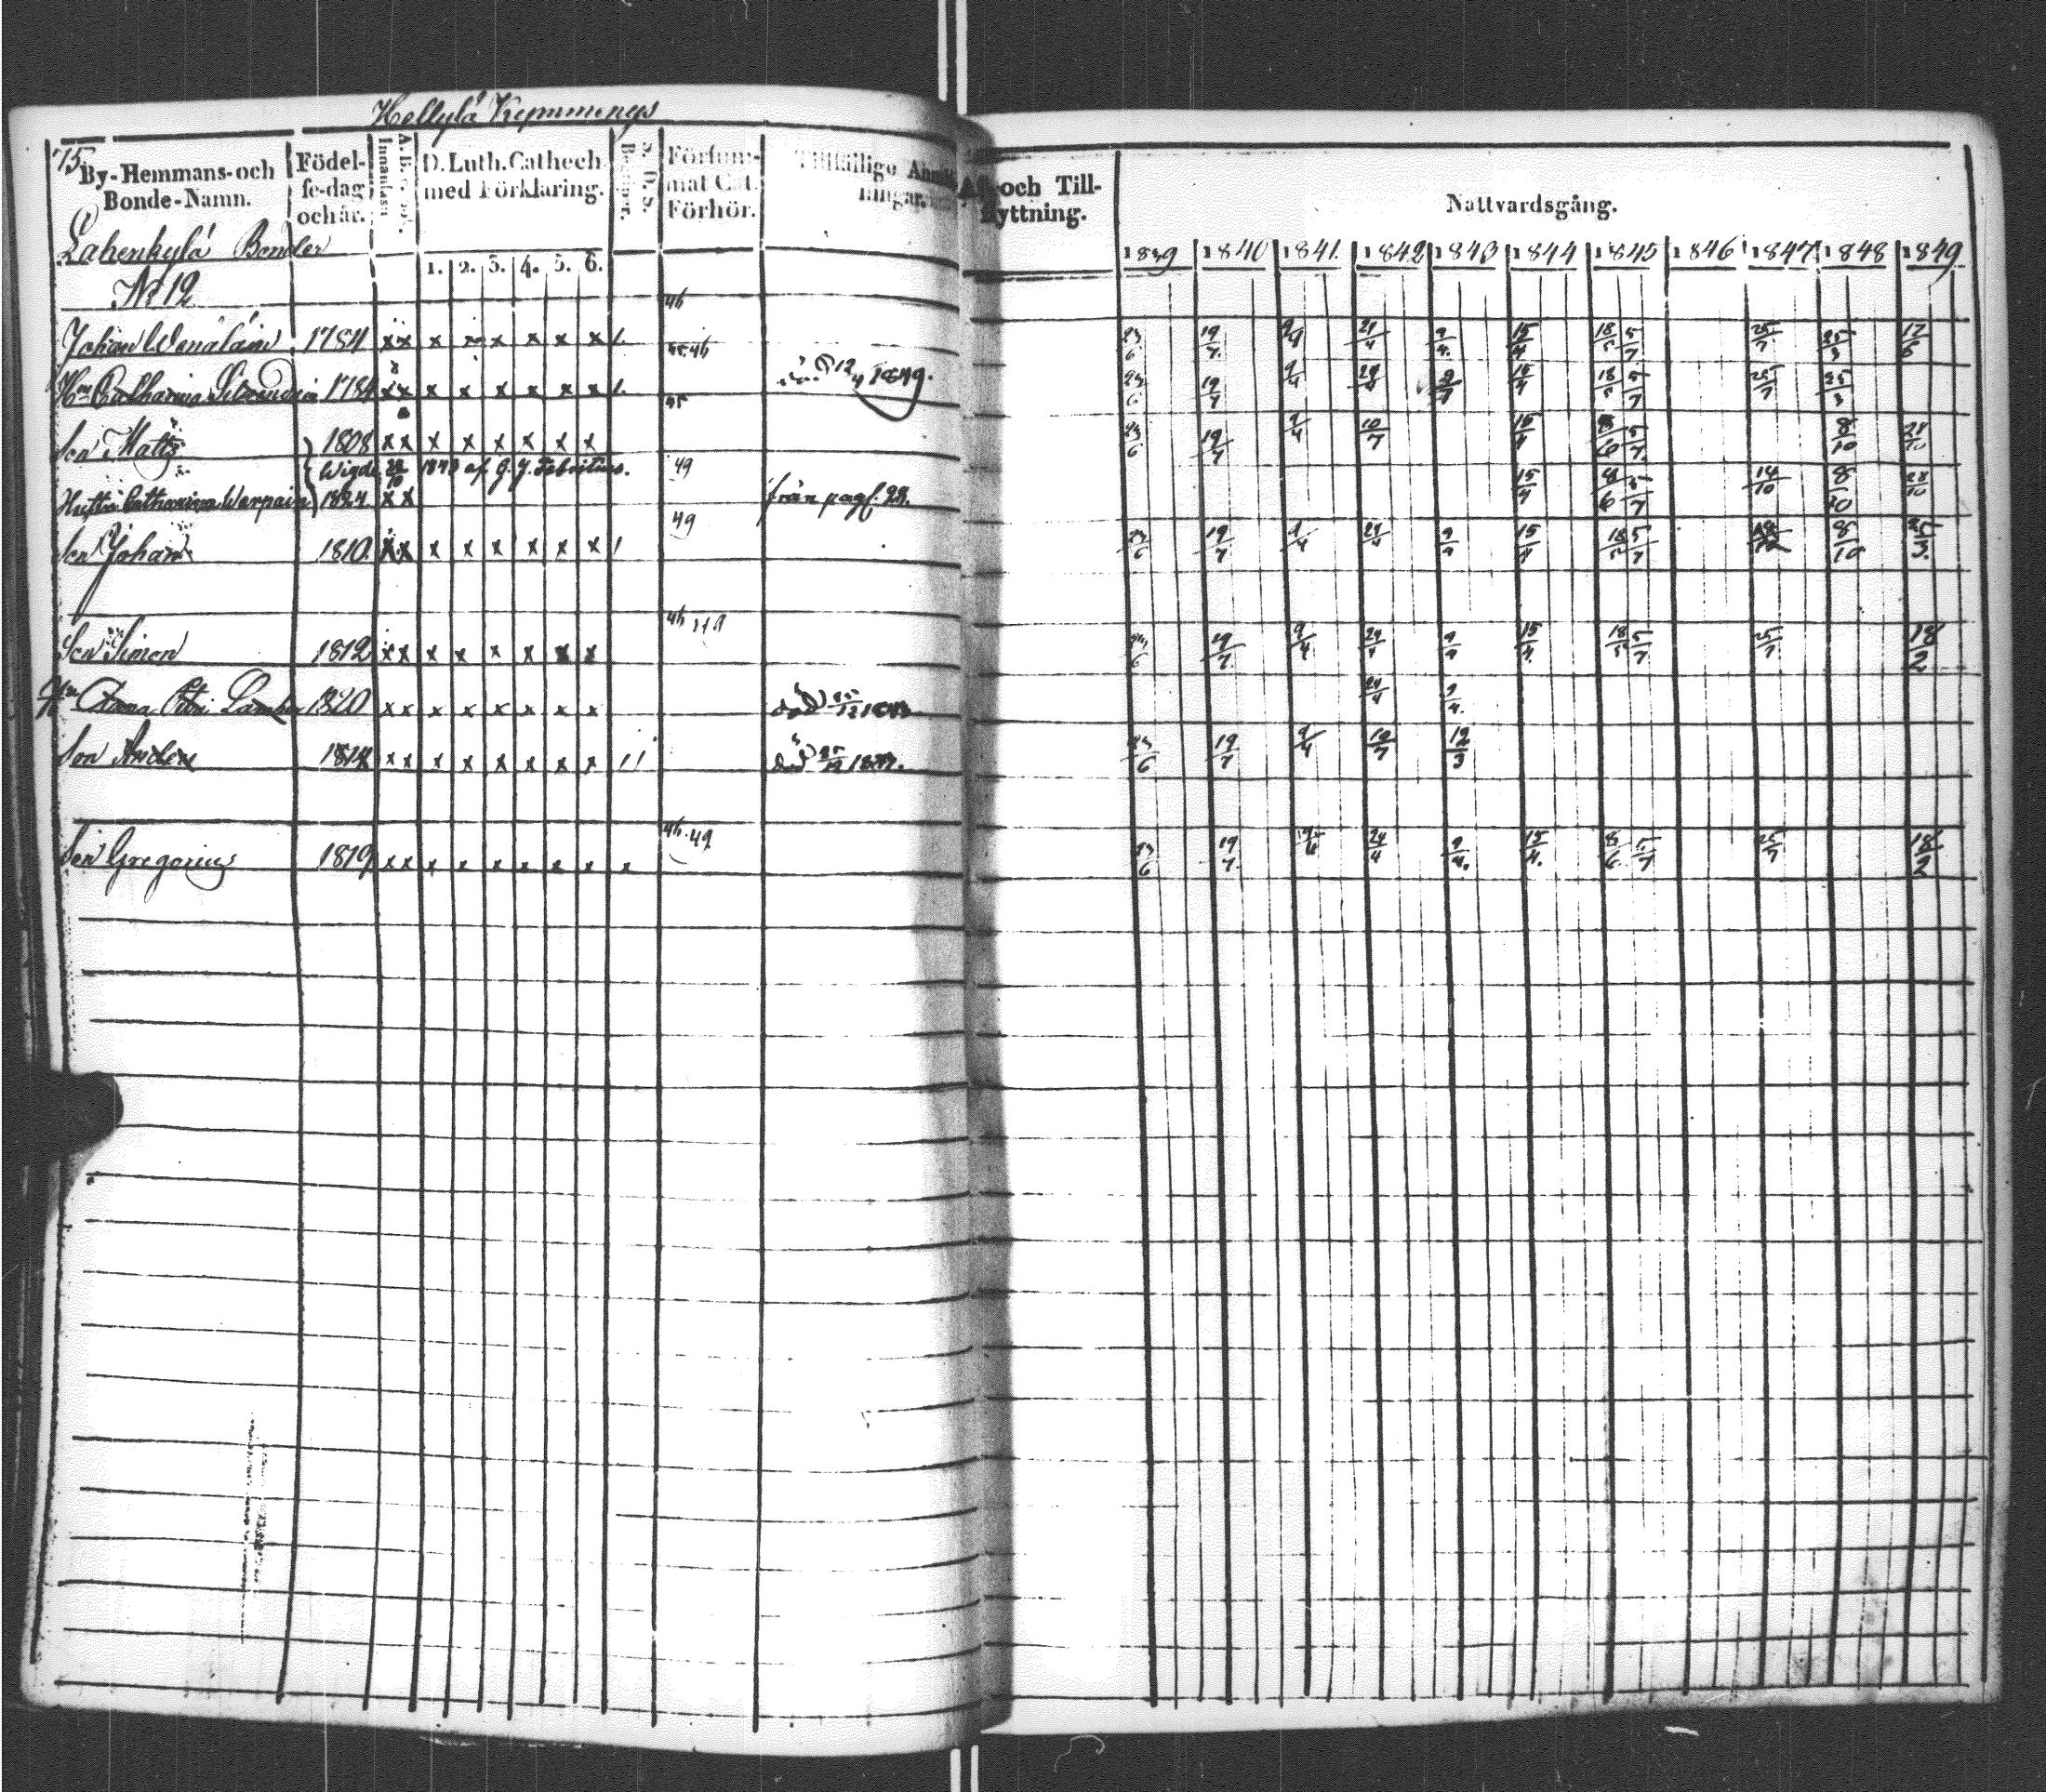 Hellylä Kymmenys
75
By-Hemmans-och Bonde-Namn.
Födel-se-dag och år.
Innanläsn
A. B. C. Bok.
D. Luth. Cathech. med Förklaring.
Försum-mat Cat. Förhör.
Tillfällige Anmärk-ningar,
Af- och Till-flyttning.
Nattvardsgång.
Lahenkylä Bönder
1. 2. 3. 4. 5. 6.
1839 1840 1841. 1842 1843 1844 1845 1846 1847 1848 1849
No 12
46
Johan Wenäläin 1784 x x x x x x x 23/6 19/7 9/4 24/4 9/4. 15/4 18/5 5/7 25/7 25/3 17/6
45 46
Hu Catharina 1784 x x x x x x x x död 12/4 1849. 23/6 19/7 9/4 24/4 9/4 15/4 18/5 5/7 25/7 25/3
45
Son Matts 1808 x x x x x x x x 23/6 19/7 9/4 10/7 15/4 8/6 5/7 8/10 28/10
Wigde 28/10 1843 af
49
Hustru Catharina Warpain 1824 x x från pag. 29. 15/4 8/6 5/7 14/10 8/10 28/10
49
Son Johan 1810 x x x x x x x x 23/6 19/7 9/4 24/4 9/4 15/4 18/5 5/7 8/10 25/3.
46 49
Son Simon 1812 x x x x x x x x 23/6 19/7 9/4 24/4 9/4 15/4. 18/5 5/7 25/7 18/2
Hu Anna 1820 x x x x x x x x död 24/4 9/4.
Son Anders 1814 x x x x x x x x död 23/6 19/7 9/4 10/7 12/3
46. 49
Son Gregorius 1819 x x x x x x x x x 23/6 19/7. 24/4 9/4. 15/4. 8/6 5/7 25/7 18/2